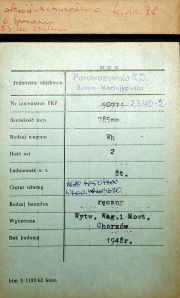 4.11.78
Jednostka służbowa Parowozownia K.D.
Bytom-Maciejkowice
Nr inwentarza PKP 2340-2
Szerokość toru 785mm
Rodzaj wagonu Wh
Ilość osi 2
Ładowność w t. 5t.
Ciężar własny
Rodzaj hamulca ręczny
Wytwórnia Wytw. Wag.i Most.
Chorzów
Rok budowy 1948r.